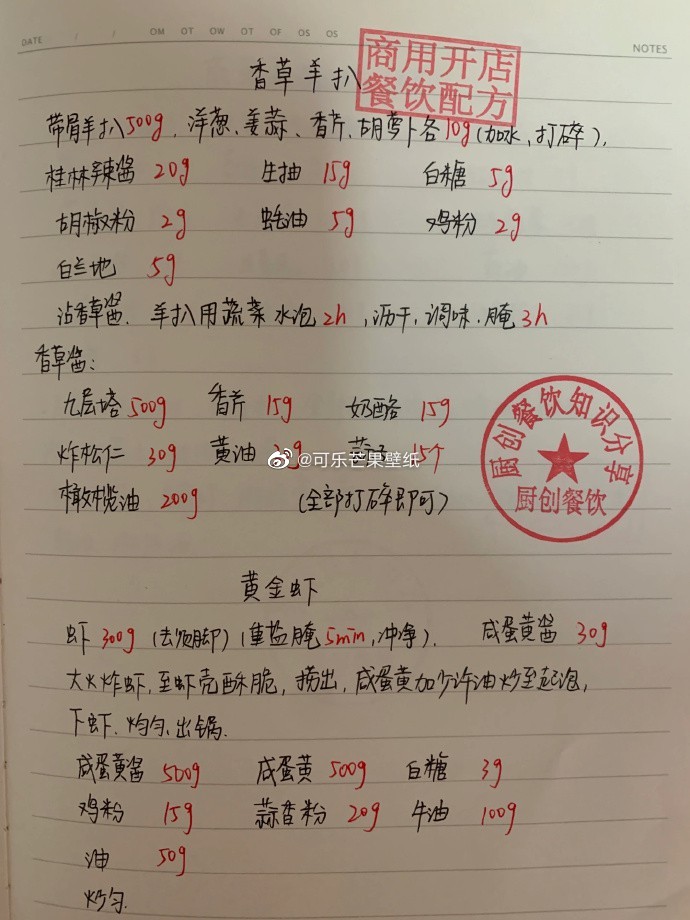 DATE / / OM OT OW OT OF OS OS NOTES
商用开店
餐饮配方
香草羊扒
带肩羊扒500g、洋葱、姜蒜、香芹、胡萝卜各10g(加水、打碎),
桂林辣酱 20g 生抽 15g 白糖 5g
胡椒粉 2g 蚝油 5g 鸡粉 2g
白兰地 5g
沾香草酱. 羊扒用蔬菜水泡2h,沥干,调味.腌3h
香草酱:
九层塔500g 香芹 15g 奶酪 15g
炸松仁 30g 黄油 15个
@可乐芒果壁纸
橄榄油 200g (全部打碎即可)
厨创餐饮知识分享
厨创餐饮
黄金虾
虾300g(去须脚)(重盐腌5min,冲净). 咸蛋黄酱30g
大火炸虾,至虾壳酥脆,捞出,咸蛋黄加少许油炒至起泡,
下虾.炒匀、出锅.
咸蛋黄酱 500g 咸蛋黄500g 白糖 3g
鸡粉 15g 蒜香粉 20g 牛油 100g
油 50g
炒匀.